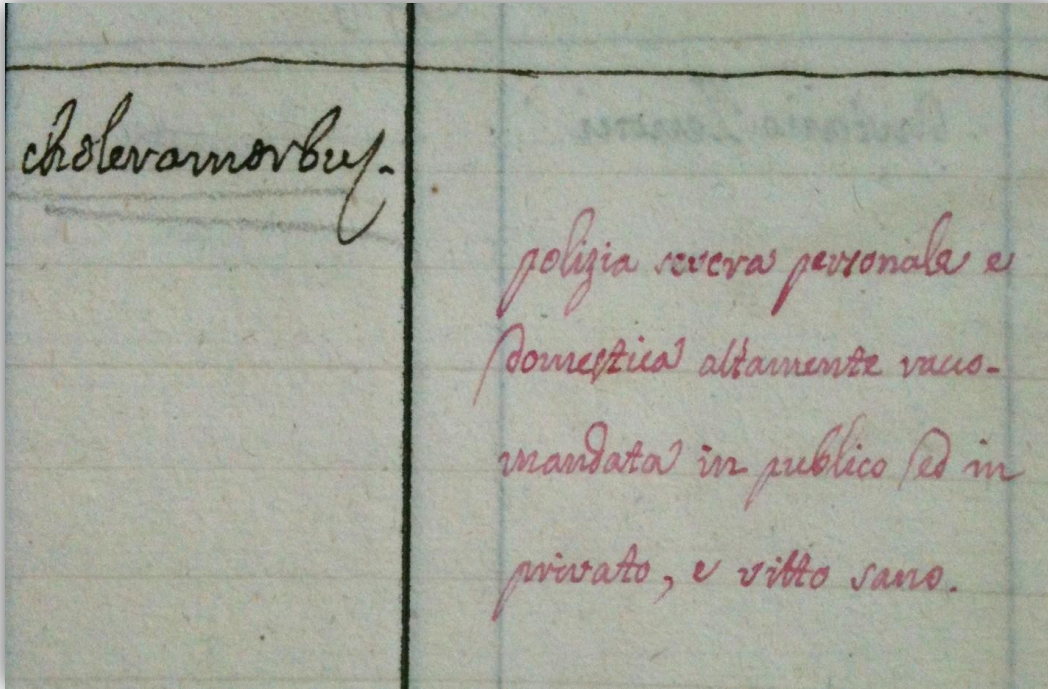 choleramorbus.
polizia severa personale e
domestica altamente racco-
mandata in publico ed in
privato, e vitto sano.